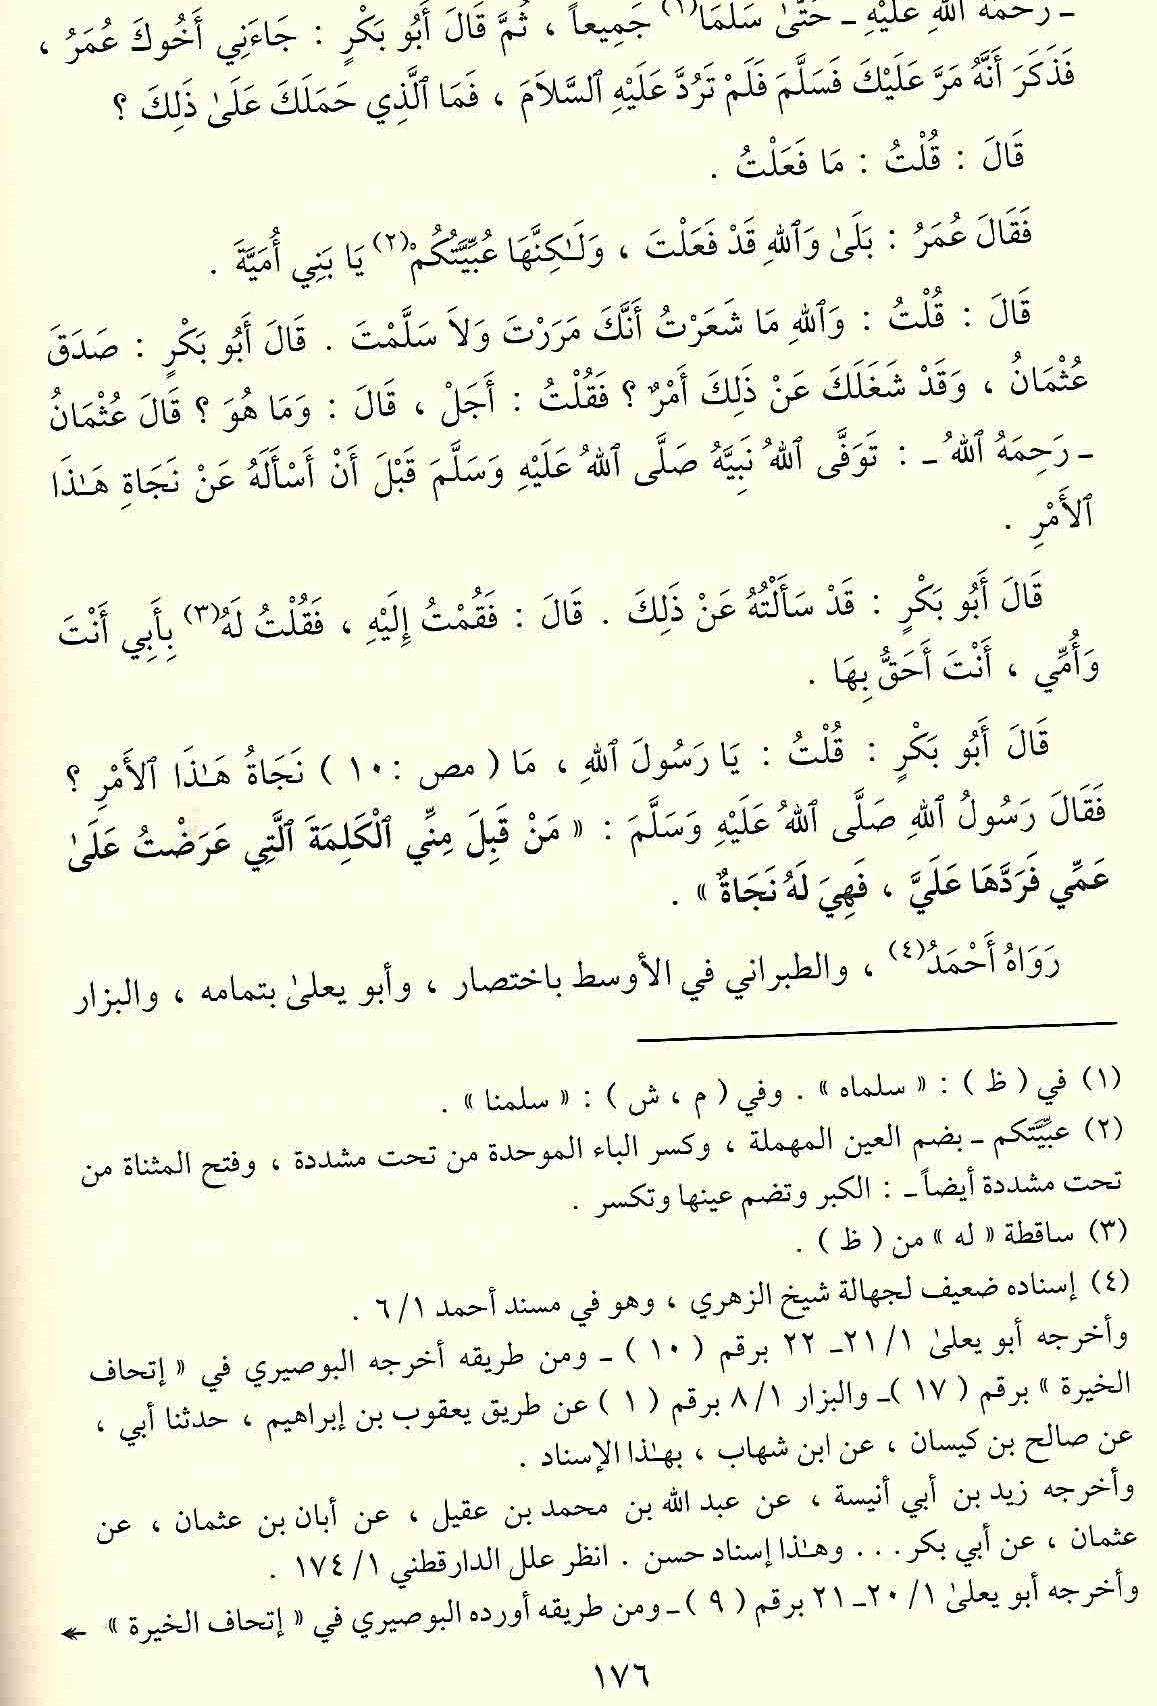 ـ رَحْمَةُ ٱللهِ عَلَيْهِ ـ حَتَّىٰ سَلَّمَا(١) جَمِيعاً ، ثُمَّ قَالَ أَبُو بَكْرٍ : جَاءَنِي أَخُوكَ عُمَرُ ،
فَذَكَرَ أَنَّهُ مَرَّ عَلَيْكَ فَسَلَّمَ فَلَمْ تَرُدَّ عَلَيْهِ ٱلسَّلاَمَ ، فَمَا ٱلَّذِي حَمَلَكَ عَلَىٰ ذَلِكَ ؟
قَالَ : قُلْتُ : مَا فَعَلْتُ .
فَقَالَ عُمَرُ : بَلَىٰ وَٱللهِ قَدْ فَعَلْتَ ، وَلَـٰكِنَّهَا عُبِّيَّتُكُمْ(٢) يَا بَنِي أُمَيَّةَ .
قَالَ : قُلْتُ : وَٱللهِ مَا شَعَرْتُ أَنَّكَ مَرَرْتَ وَلاَ سَلَّمْتَ . قَالَ أَبُو بَكْرٍ : صَدَقَ
عُثْمَانُ ، وَقَدْ شَغَلَكَ عَنْ ذَلِكَ أَمْرٌ ؟ فَقُلْتُ : أَجَلْ ، قَالَ : وَمَا هُوَ ؟ قَالَ عُثْمَانُ
ـ رَحِمَهُ ٱللهُ ـ : تَوَفَّى ٱللهُ نَبِيَّهُ صَلَّى ٱللهُ عَلَيْهِ وَسَلَّمَ قَبْلَ أَنْ أَسْأَلَهُ عَنْ نَجَاةِ هَـٰذَا
ٱلأَمْرِ .
قَالَ أَبُو بَكْرٍ : قَدْ سَأَلْتُهُ عَنْ ذَلِكَ . قَالَ : فَقُمْتُ إِلَيْهِ ، فَقُلْتُ لَهُ(٣) بِأَبِي أَنْتَ
وَأُمِّي ، أَنْتَ أَحَقُّ بِهَا .
قَالَ أَبُو بَكْرٍ : قُلْتُ : يَا رَسُولَ ٱللهِ ، مَا ( مص : ١٠ ) نَجَاةُ هَـٰذَا ٱلأَمْرِ ؟
فَقَالَ رَسُولُ ٱللهِ صَلَّى ٱللهُ عَلَيْهِ وَسَلَّمَ : « مَنْ قَبِلَ مِنِّي ٱلْكَلِمَةَ ٱلَّتِي عَرَضْتُ عَلَىٰ
عَمِّي فَرَدَّهَا عَلَيَّ ، فَهِيَ لَهُ نَجَاةٌ » .
رَوَاهُ أَحْمَدُ(٤) ، والطبراني في الأوسط باختصار ، وأبو يعلىٰ بتمامه ، والبزار
(١) في ( ظ ) : « سلماه » . وفي ( م ، ش ) : « سلمنا » .
(٢) عبِّيَّتكم ـ بضم العين المهملة ، وكسر الباء الموحدة من تحت مشددة ، وفتح المثناة من
تحت مشددة أيضاً ـ : الكبر وتضم عينها وتكسر .
(٣) ساقطة « له » من ( ظ ) .
(٤) إسناده ضعيف لجهالة شيخ الزهري ، وهو في مسند أحمد ١/ ٦ .
وأخرجه أبو يعلىٰ ١/ ٢١ـ ٢٢ برقم ( ١٠ ) ـ ومن طريقه أخرجه البوصيري في « إتحاف
الخيرة » برقم ( ١٧ )ـ والبزار ١/ ٨ برقم ( ١ ) عن طريق يعقوب بن إبراهيم ، حدثنا أبي ،
عن صالح بن كيسان ، عن ابن شهاب ، بهـٰذا الإسناد .
وأخرجه زيد بن أبي أنيسة ، عن عبد الله بن محمد بن عقيل ، عن أبان بن عثمان ، عن
عثمان ، عن أبي بكر . . . وهـٰذا إسناد حسن . انظر علل الدارقطني ١/ ١٧٤ .
وأخرجه أبو يعلىٰ ١/ ٢٠ـ ٢١ برقم ( ٩ ) ـ ومن طريقه أورده البوصيري في « إتحاف الخيرة » ←
١٧٦